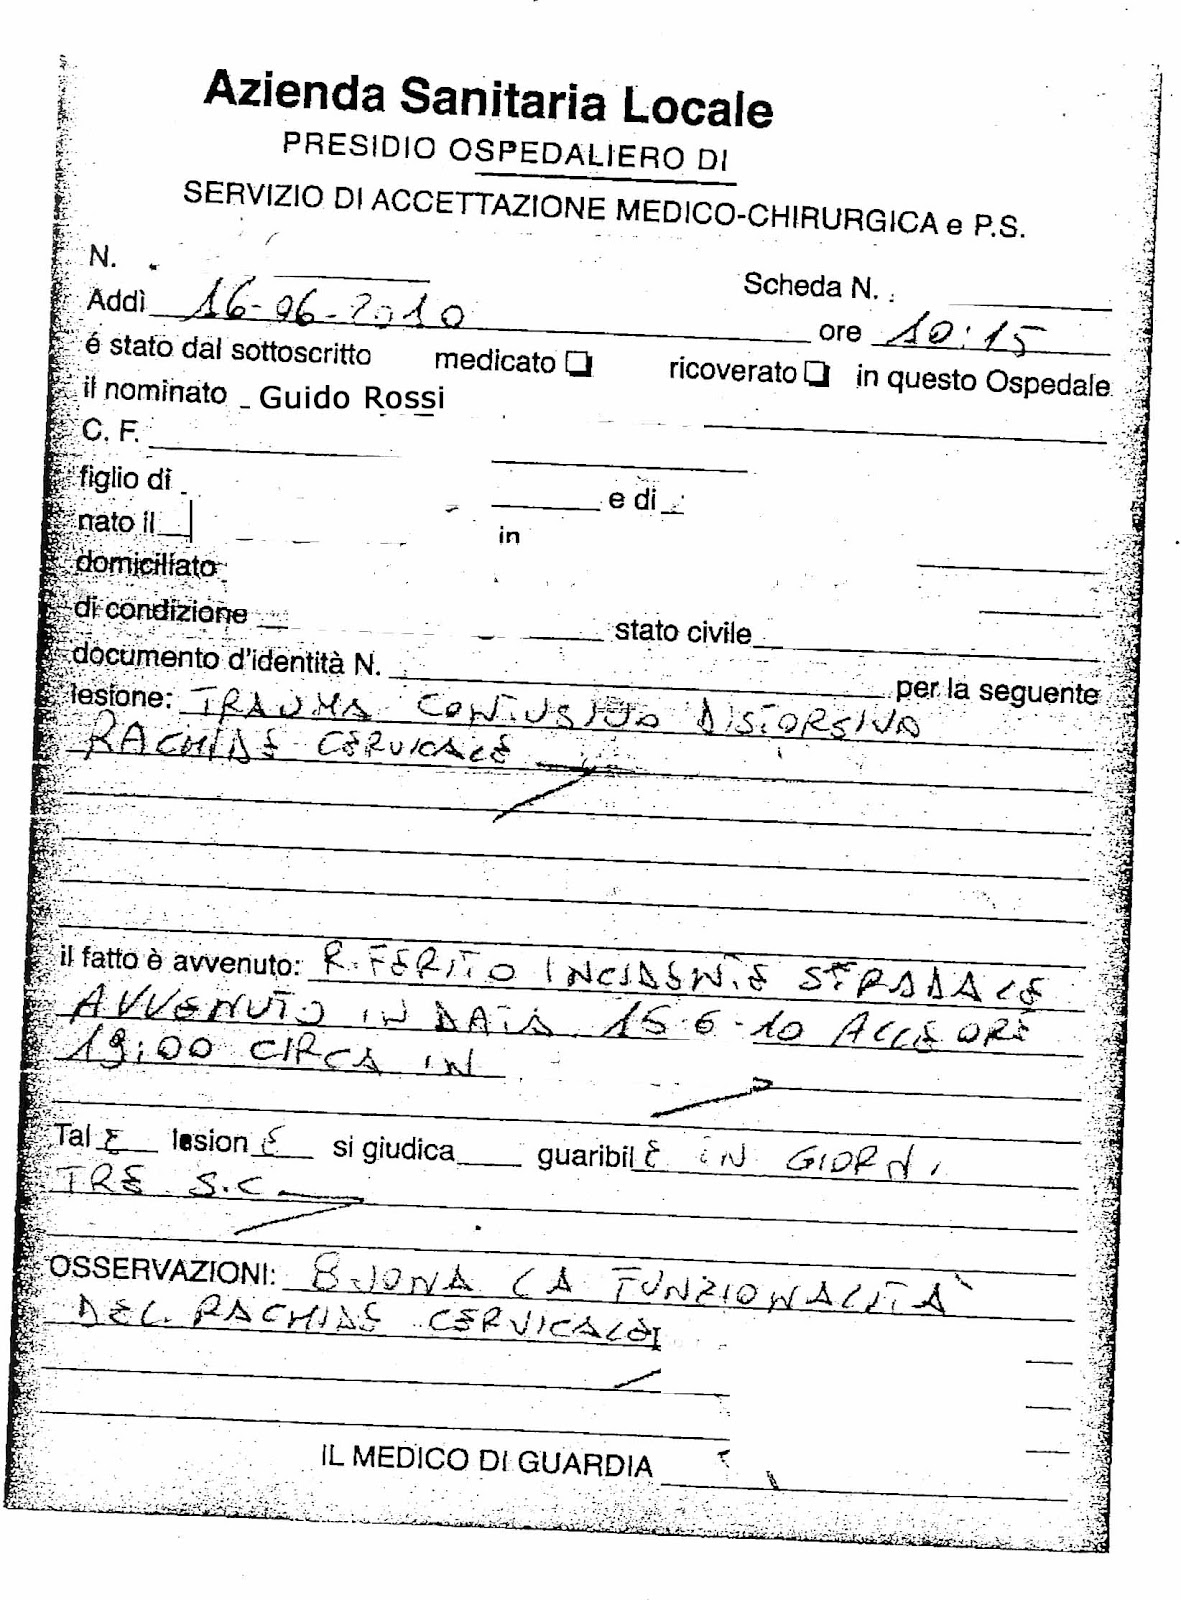 Azienda Sanitaria Locale
PRESIDIO OSPEDALIERO DI
SERVIZIO DI ACCETTAZIONE MEDICO-CHIRURGICA e P.S.
N.
Scheda N.
Addì 16-06-2010 ore 10:15
é stato dal sottoscritto medicato ❏ ricoverato ❏ in questo Ospedale
il nominato Guido Rossi
C. F.
figlio di e di
nato il in
domiciliato
di condizione stato civile
documento d'identità N. per la seguente
lesione: TRAUMA CONTUSIVO DISTORSIVO
RACHIDE CERVICALE
il fatto è avvenuto: RIFERITO INCIDENTE STRADALE
AVVENUTO IN DATA 15-6-10 ALLE ORE
19:00 CIRCA IN
Tal E lesion E si giudica guaribil E IN GIORNI
TRE S.C.
OSSERVAZIONI: BUONA LA FUNZIONALITA'
DEL RACHIDE CERVICALE
IL MEDICO DI GUARDIA